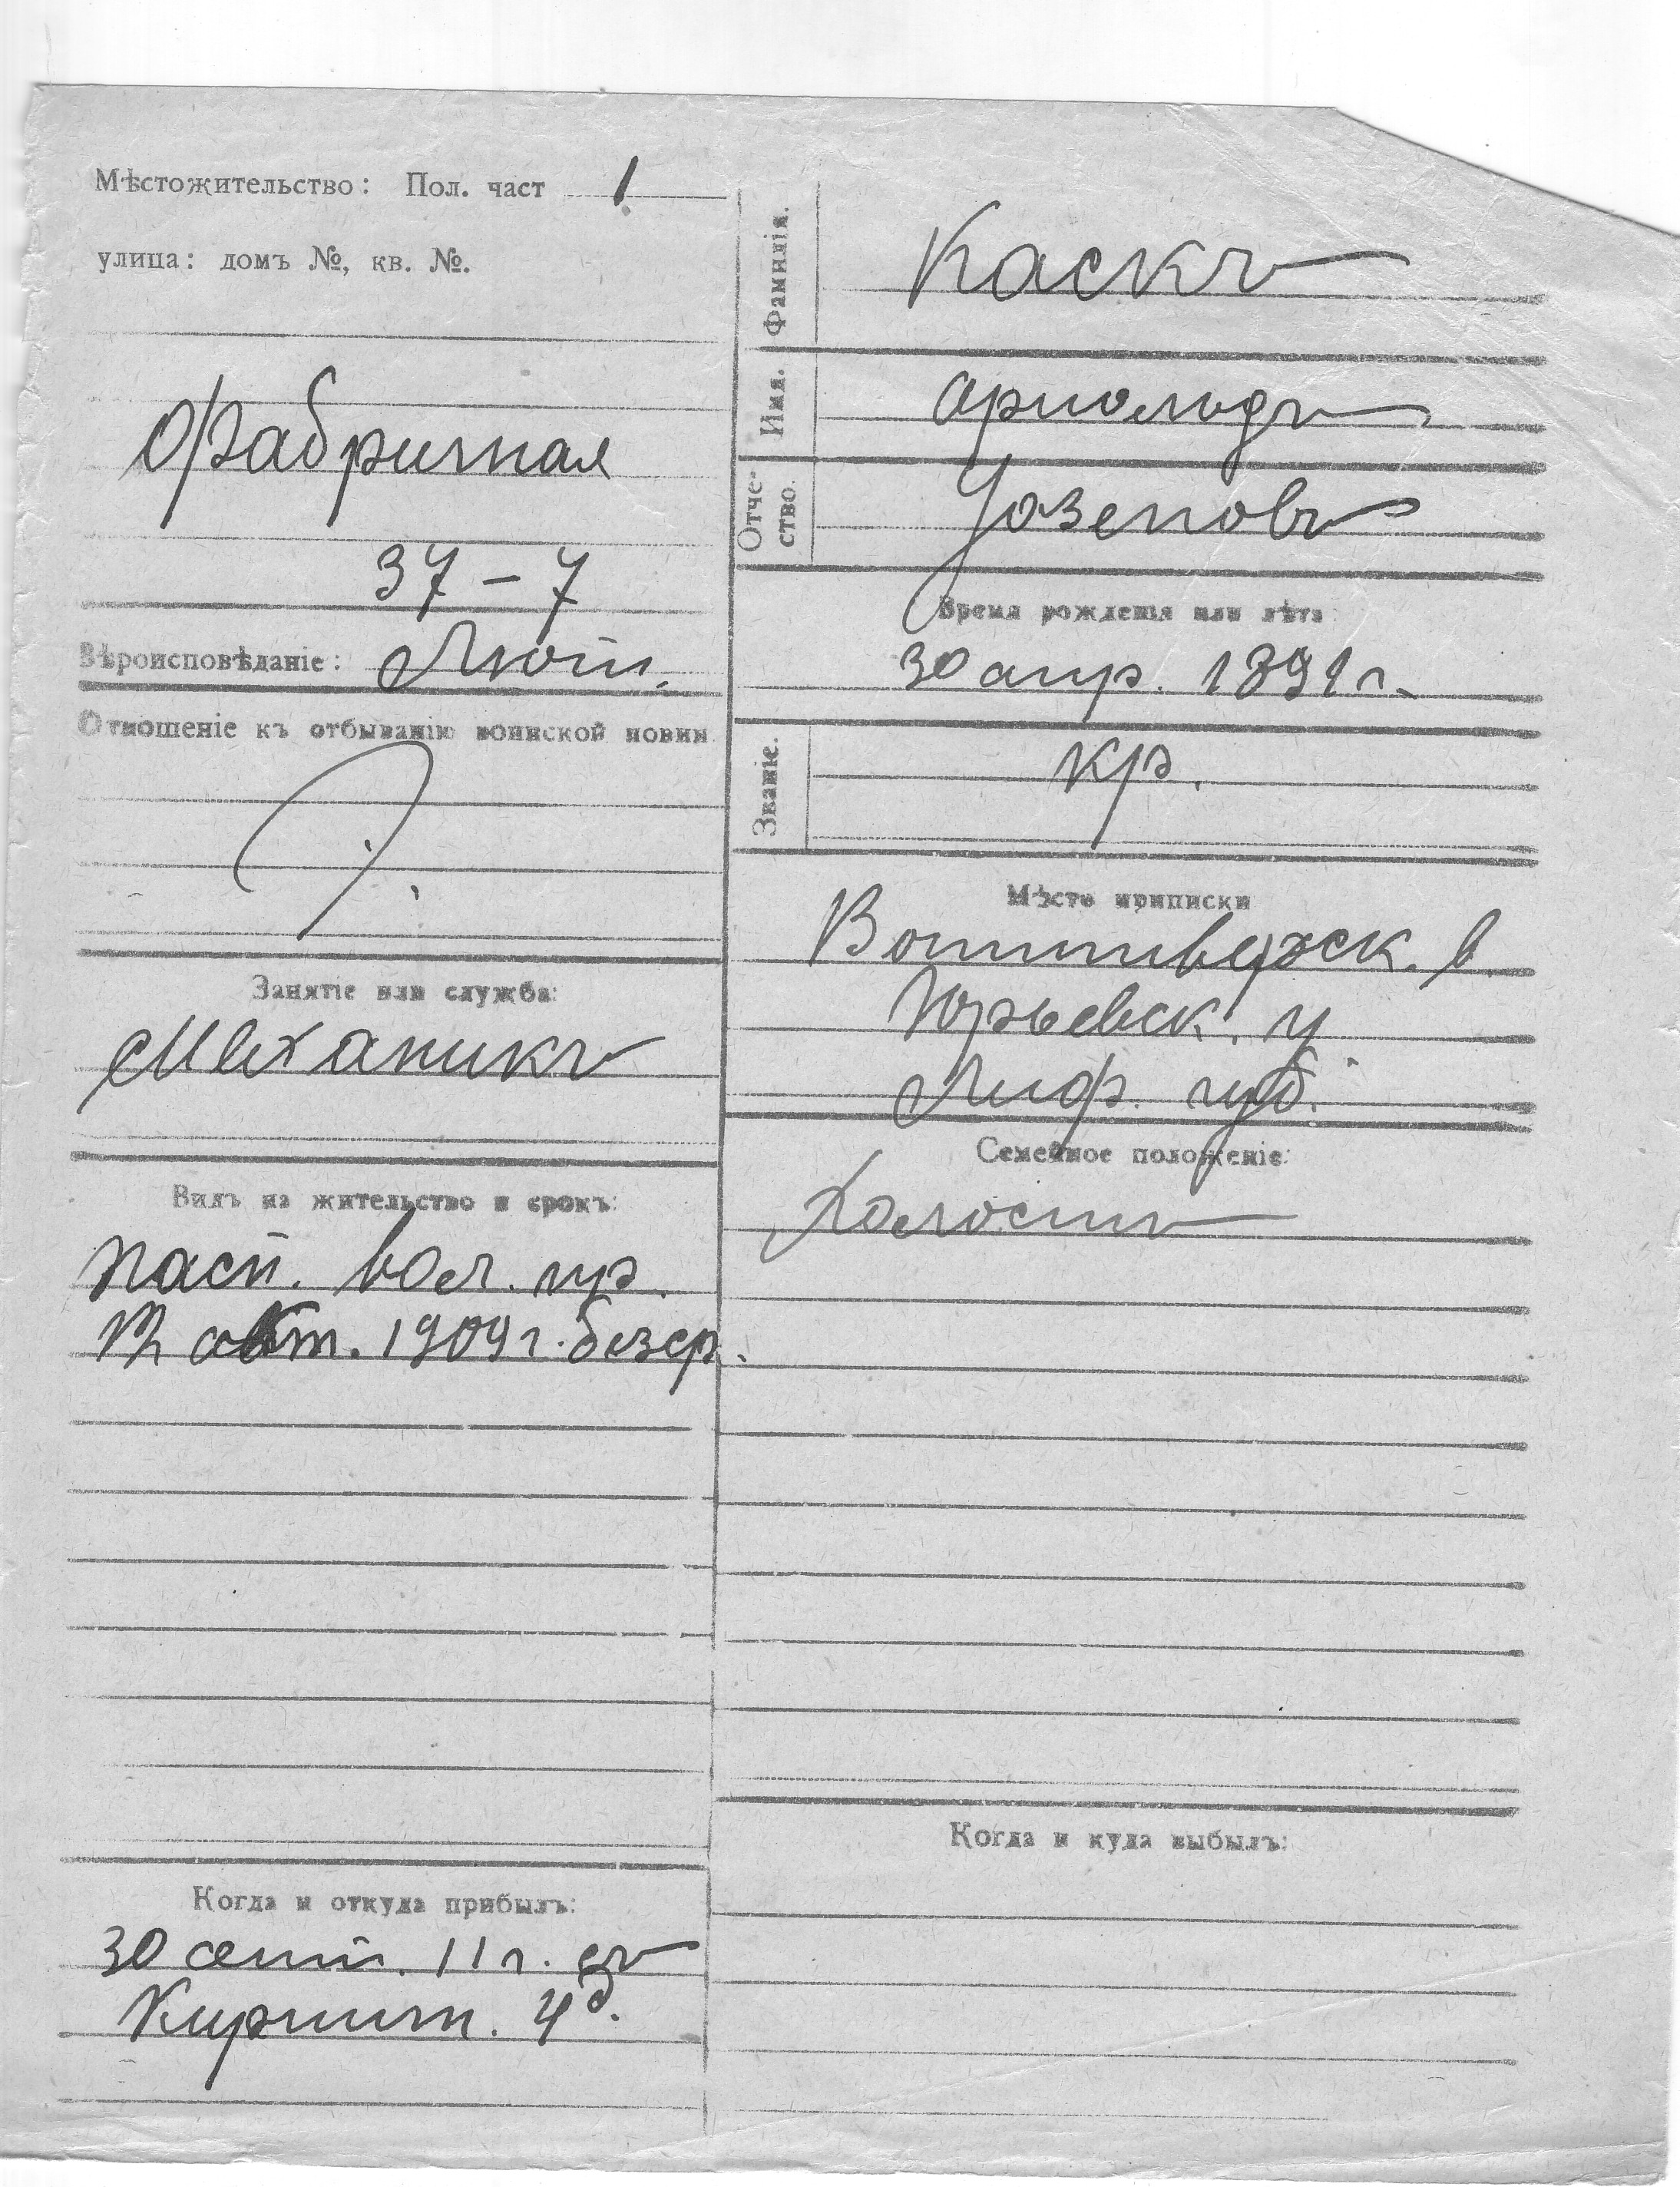 Мѣстожительство: Пол. част 1
улица: домъ №, кв. №.
Фабричная
37 – 7
Вѣроисповѣданіе: Лют.
Отношеніе къ отбыванію воинской повин
Занятіе или служба:
Механикъ
Видъ на жительство и срокъ:
пасп. вол. пр.
окт. 1909 г. безср.
Когда и откуда прибылъ:
30 сент. 11 г. съ
Кирпит. 4
Фамилія. Каскъ
Имя. Арнольдъ
Отче-
ство. Іозеповъ
Время рожденія или лѣта
30 апр. 1891 г.
Званіе. кр.
Мѣсто приписки
в.
Юрьевск. у
Лифр. губ.
Семейное положеніе:
Холостъ
Когда и куда выбылъ: